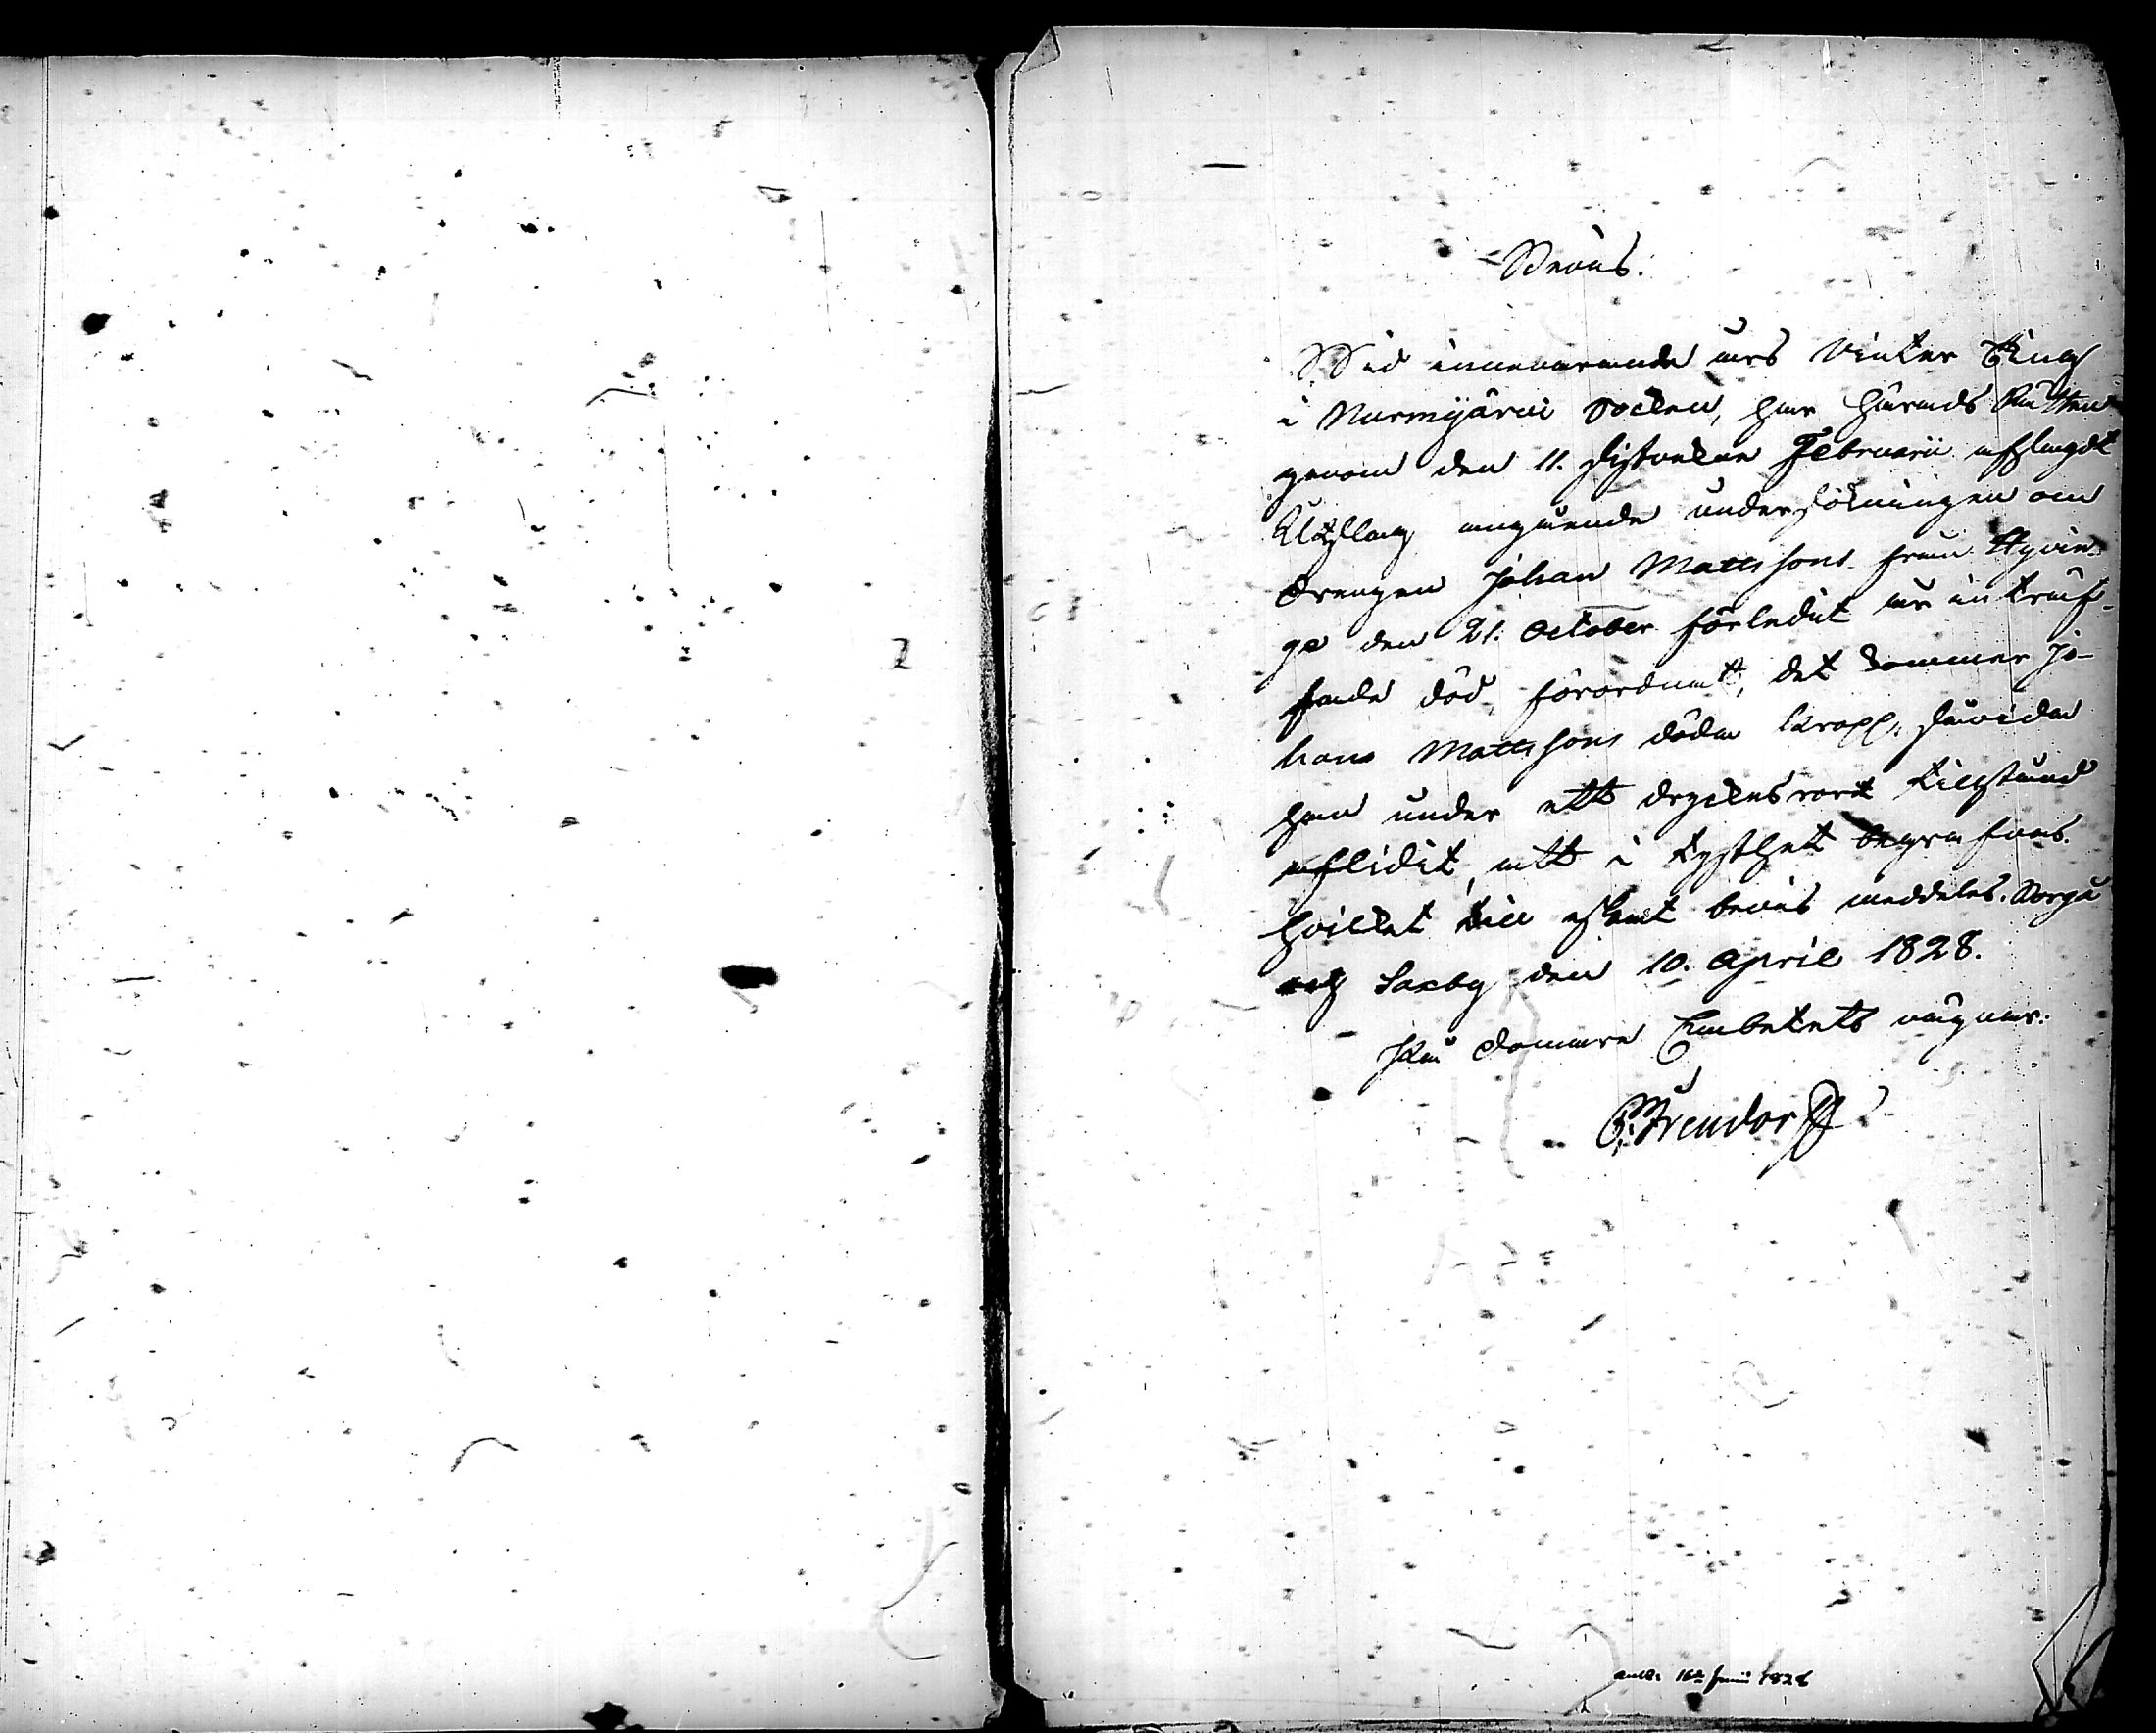 Bevis.
Wid innevarande års Vinter Ting
i Nurmijärvi Socken, har Härads Rätten
genom den 11. sistvekne Februarii afsagdt
Utslag angående undersökningen om
Drengen Johan Mattssons från Hyvin-
ge den 21. October förledit år inträf-
fade död, förordnatt, det kommer Jo-
hans Mattssons döda kropp, såvida
han under ett dryckensrort tillstånd
aflidit, att i tysthet begrafvas.
hvilket till äskat bevis meddeles. Borgå
och Saxby den 10. April 1828.
På Domare Embetets vägnar:
Frendorff
2
ankl. 16de Junii 1828